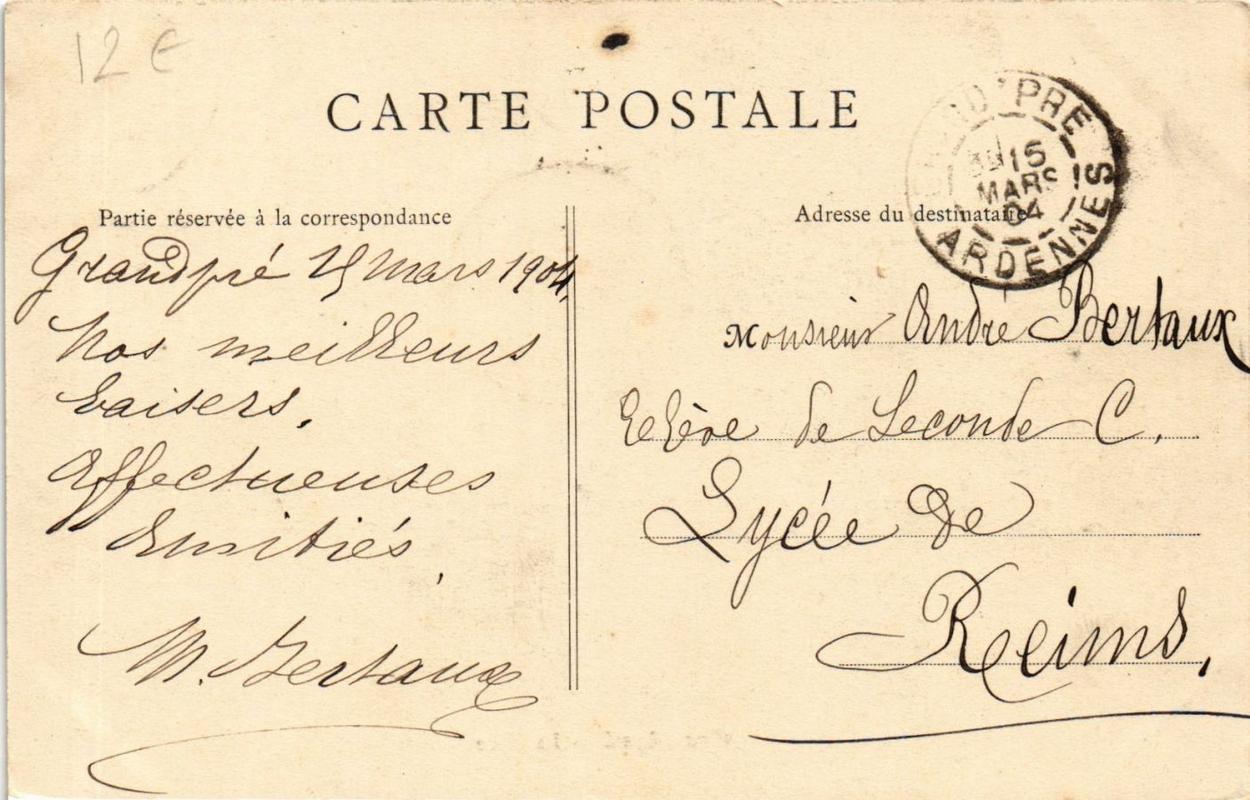 12 €
CARTE POSTALE
GRANDPRÉ
15
MARS
04
ARDENNES
Partie réservée à la correspondance
Grandpré 15 Mars 1904.
Nos meilleurs
baisers.
Affectueuses
Amitiés,
M. Bertaux
Adresse du destinataire
Monsieur André Bertaux
Elève de Seconde C.
Lycée de
Reims,